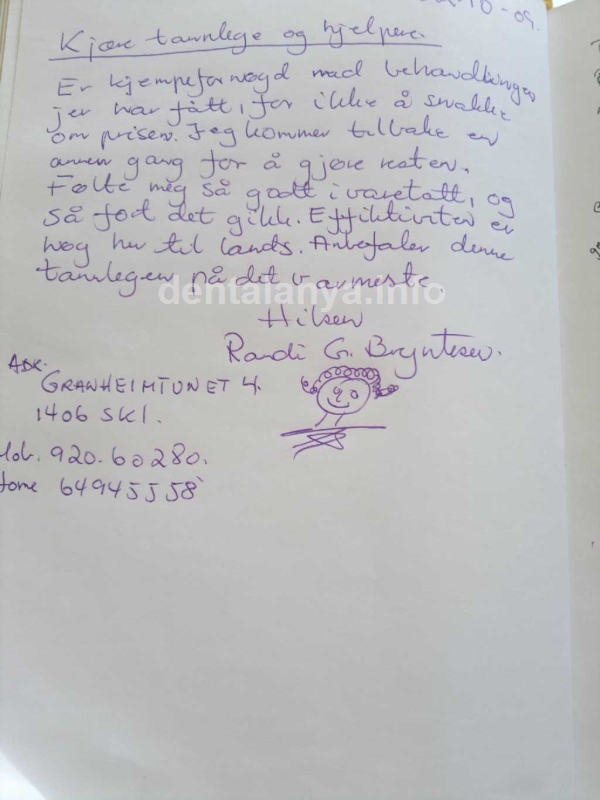 10-09.
Kjære tannlege og hjelpere.
Er kjempefornøyd med behandlingen
jeg har fått, for ikke å snakke
om prisen. Jeg kommer tilbake en
annen gang for å gjøre resten.
Følte meg så godt ivaretatt, og
så fort det gikk. Effektiviten er
nog her til lands. Anbefaler denne
tannlegen på det varmeste.
dentalanya.info
Hilsen
Randi G. Bryntesen.
ADR.
GRANHEIMTUNET 4.
1406 SKI.
Mob. 920.60280.
Home 64945558